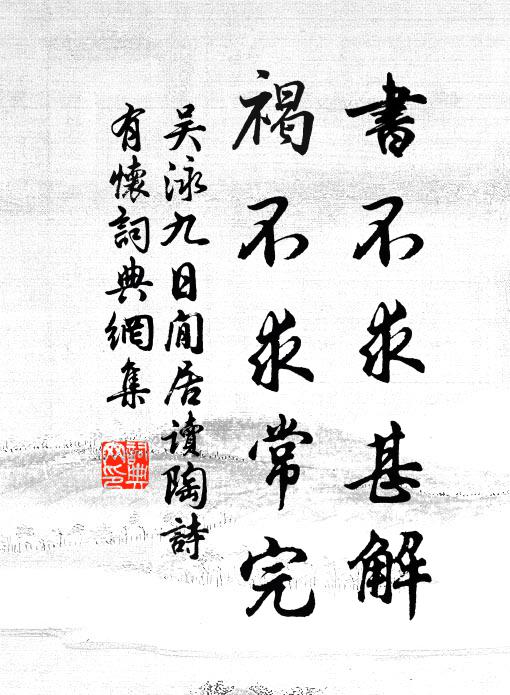 書不求甚解
褐不求常完
吴泳九日閒居讀陶詩
有懷詞典網集
詞典